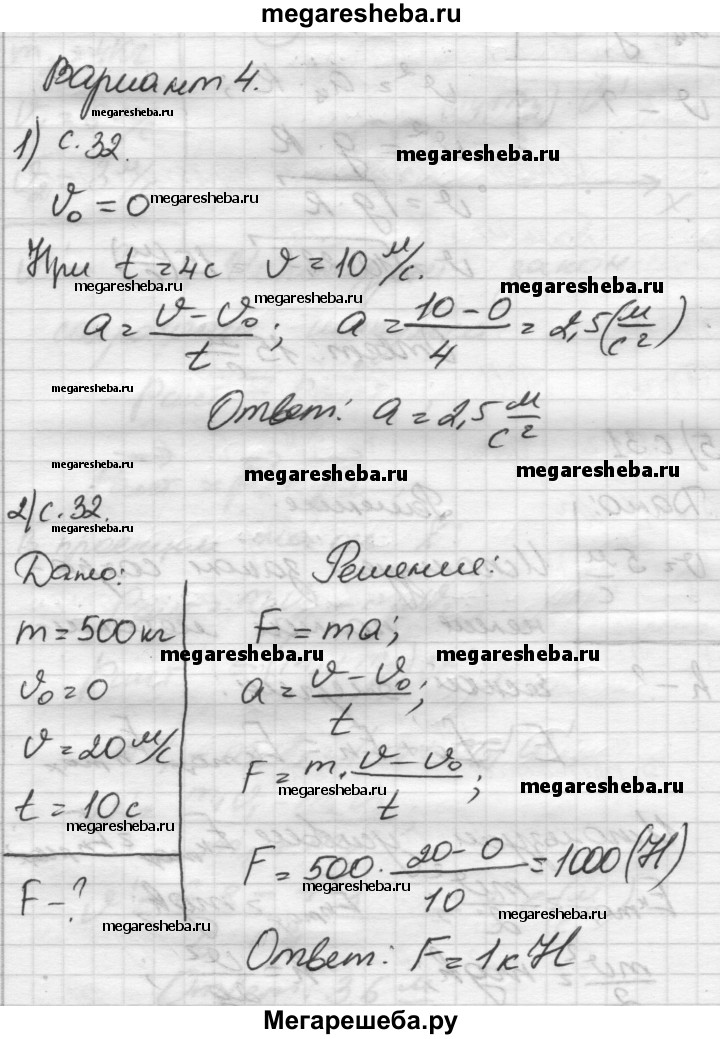 megaresheba.ru
Вариант 4.
megaresheba.ru
1) с. 32.
megaresheba.ru
megaresheba.ru
v₀ = 0
megaresheba.ru
При t = 4с v = 10 м/с.
megaresheba.ru
megaresheba.ru
megaresheba.ru
a = (v - v₀)/t; a = (10 - 0)/4 = 2,5 (м/с²)
megaresheba.ru
Ответ: a = 2,5 м/с²
megaresheba.ru
megaresheba.ru
megaresheba.ru
2) с. 32.
megaresheba.ru
Дано:
m = 500 кг
v₀ = 0
v = 20 м/с
t = 10 с
megaresheba.ru
F - ?
megaresheba.ru
Решение:
F = ma;
megaresheba.ru
megaresheba.ru
a = (v - v₀)/t;
F = m · (v - v₀)/t;
megaresheba.ru
megaresheba.ru
F = 500 · (20 - 0)/10 = 1000 (Н)
megaresheba.ru
megaresheba.ru
Ответ: F = 1 кН
megaresheba.ru
Мегарешеба.ру